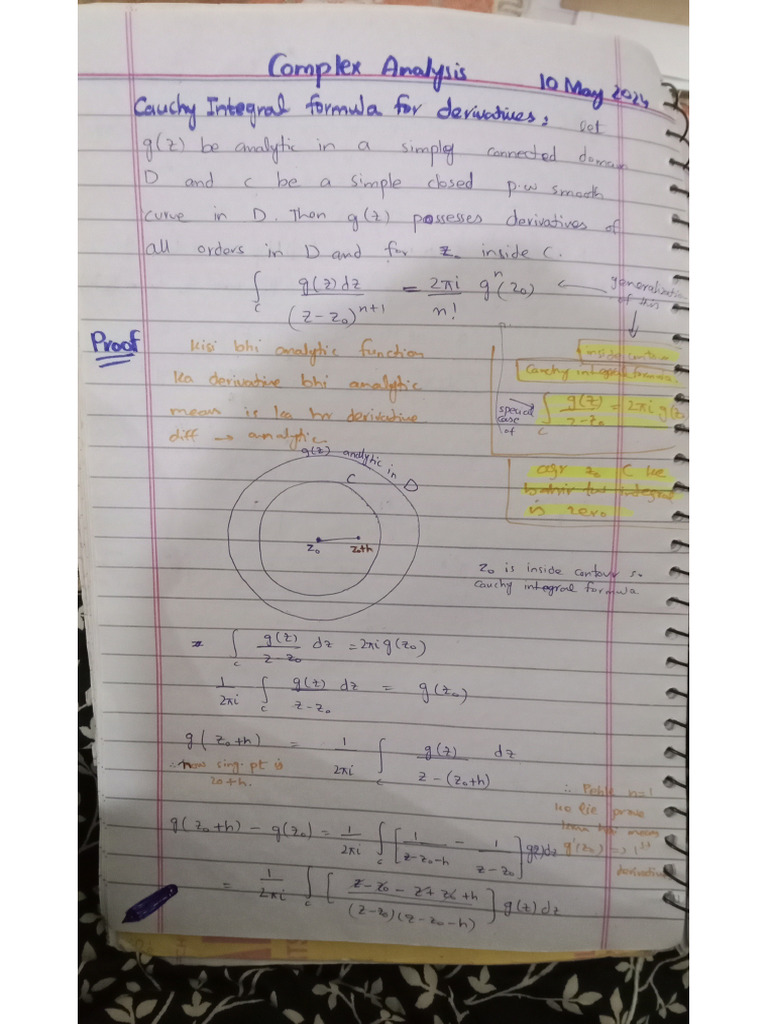 Complex Analysis
10 May 2024
Cauchy Integral formula for derivatives: let
g(z) be analytic in a simply connected domain
D and c be a simple closed p.w smooth
curve in D. Then g(z) possesses derivatives of
all orders in D and for z₀ inside C.
∫c g(z)dz / (z-z₀)^(n+1) = 2πi/n! gⁿ(z₀) ← generalization
of this
Proof
kisi bhi analytic function
ka derivative bhi analytic
mean is ka hr derivative
diff → analytic
inside contour
Cauchy integral formula.
special case of ∫c g(z)/z-z₀ = 2πi g(z₀
agr z₀ C ke
bahir integral
is zero
g(z) analytic in D
C
z₀ z₀+h
z₀ is inside contour so
Cauchy integral formula
∫c g(z)/z-z₀ dz = 2πi g(z₀)
1/2πi ∫c g(z)/z-z₀ dz = g(z₀)
g(z₀+h) = 1/2πi ∫c g(z)/z-(z₀+h) dz
∴ now sing. pt is
z₀+h.
∴ Pehle n=1
ke lie prove
mean
g'(z₀) => 1st
derivative
g(z₀+h) - g(z₀) = 1/2πi ∫c [1/z-z₀-h - 1/z-z₀] g(z)dz
= 1/2πi ∫c [z-z₀-z+z₀+h / (z-z₀)(z-z₀-h)] g(z)dz